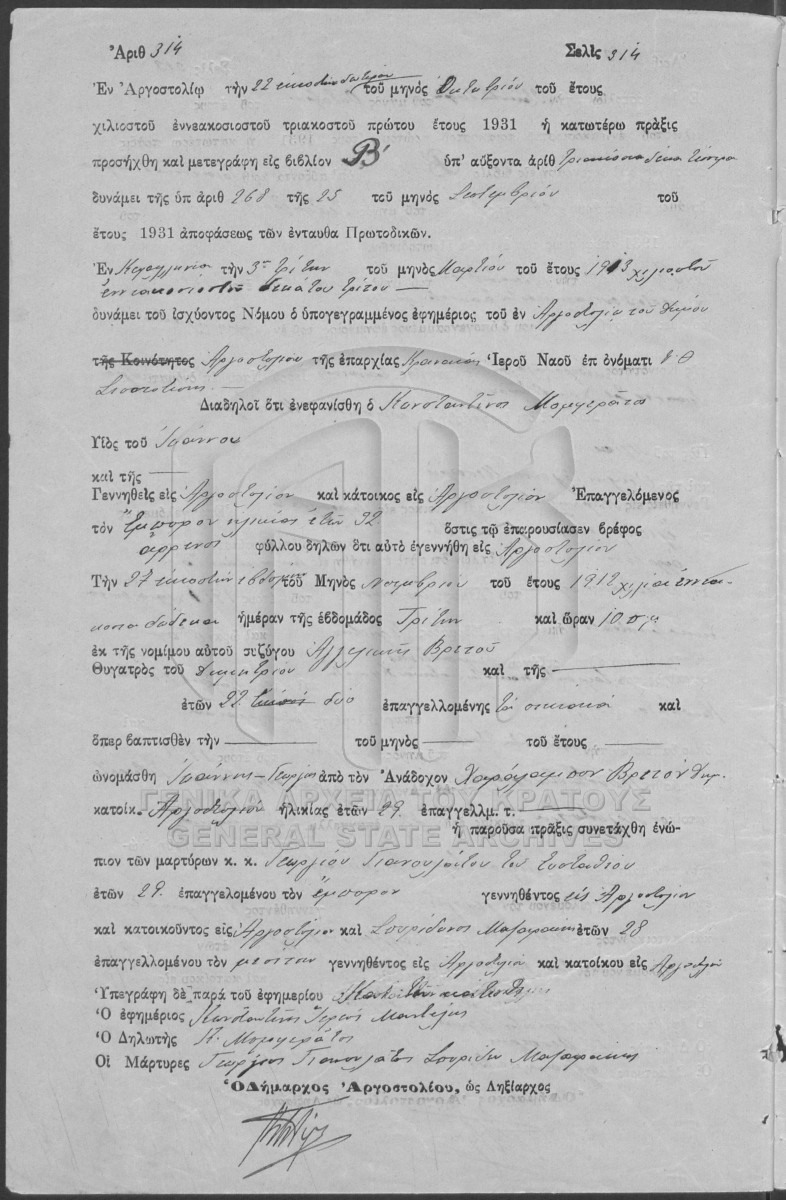 Ἀριθ 314 Σελὶς 314
Ἐν Ἀργοστολίῳ τὴν 22 εἰκοστὴν δευτέραν τοῦ μηνὸς Ὀκτωβρίου τοῦ ἔτους
χιλιοστοῦ ἐννεακοσιοστοῦ τριακοστοῦ πρώτου ἔτους 1931 ἡ κατωτέρω πρᾶξις
προσήχθη καὶ μετεγράφη εἰς βιβλίον Β' ὑπ' αὔξοντα ἀριθ τριακόσια δέκα τέσσερα
δυνάμει τῆς ὑπ ἀριθ 268 τῆς 25 τοῦ μηνὸς Σεπτεμβρίου τοῦ
ἔτους 1931 ἀποφάσεως τῶν ἐνταυθα Πρωτοδικῶν.
Ἐν Κεφαλληνίᾳ τὴν 3ην τρίτην τοῦ μηνὸς Μαρτίου τοῦ ἔτους 1913 χιλιοστοῦ
ἐννεακοσιοστοῦ δεκάτου τρίτου —
δυνάμει τοῦ ἰσχύοντος Νόμου ὁ ὑπογεγραμμένος ἐφημέριος τοῦ ἐν Ἀργοστολίῳ τοῦ Δήμου
τῆς Κοινότητος Ἀργοστολίου τῆς ἐπαρχίας Κραναίας Ἱεροῦ Ναοῦ ἐπ ὀνόματι
Διαδηλοῖ ὅτι ἐνεφανίσθη ὁ Κωνσταντῖνος Μομφεράτος
Υἱὸς τοῦ Ἰωάννου
καὶ τῆς —
Γεννηθεὶς εἰς Ἀργοστόλιον καὶ κάτοικος εἰς Ἀργοστόλιον Ἐπαγγελόμενος
τὸν ἔμπορον ἡλικίας ἐτῶν 32 ὅστις τῷ ἐπαρουσίασεν βρέφος
ἄρρενος φύλλου δηλῶν ὅτι αὐτὸ ἐγεννήθη εἰς Ἀργοστόλιον
Τὴν 27 εἰκοστὴν ἑβδόμην τοῦ Μηνὸς Νοεμβρίου τοῦ ἔτους 1912 χίλια ἐννεα-
κόσια δώδεκα ἡμέραν τῆς ἑβδομάδος Τρίτην καὶ ὥραν 10 π.μ.
ἐκ τῆς νομίμου αὐτοῦ συζύγου Ἀγγελικῆς Βρεττοῦ
Θυγατρὸς τοῦ Δημητρίου καὶ τῆς —
ἐτῶν 22 εἴκοσι δύο ἐπαγγελλομένης τὰ οἰκιακὰ καὶ
ὅπερ βαπτισθὲν τὴν — τοῦ μηνὸς — τοῦ ἔτους —
ὠνομάσθη Ἰωάννης-Γεώργιος ἀπὸ τὸν Ἀνάδοχον Χαράλαμπον Βρεττὸν Δημ.
κατοίκ. Ἀργοστολίου ἡλικίας ἐτῶν 29 ἐπαγγελλμ. τ. —
ἡ παροῦσα πρᾶξις συνετάχθη ἐνώ-
πιον τῶν μαρτύρων κ. κ. Γεωργίου Γιανουλάτου του Ευσταθίου
ἐτῶν 29 ἐπαγγελομένου τὸν ἔμπορον γεννηθέντος εἰς Ἀργοστόλιον
καὶ κατοικοῦντος εἰς Ἀργοστόλιον καὶ Σπυρίδωνος Μαζαράκη ἐτῶν 28
ἐπαγγελλομένου τὸν μεσίτην γεννηθέντος εἰς Ἀργοστόλιον καὶ κατοίκου εἰς Ἀργοστόλιον
Ὑπεγράφη δὲ παρὰ τοῦ ἐφημερίου
Ὁ ἐφημέριος Κωνσταντῖνος Ἱερεὺς
Ὁ Δηλωτὴς Κ. Μομφεράτος
Οἱ Μάρτυρες Γεώργιος Γιανουλάτος Σπυρίδων Μαζαράκης
Ὁ Δήμαρχος Ἀργοστολίου, ὡς Ληξίαρχος
ΓΕΝΙΚΑ ΑΡΧΕΙΑ ΤΟΥ ΚΡΑΤΟΥΣ
GENERAL STATE ARCHIVES